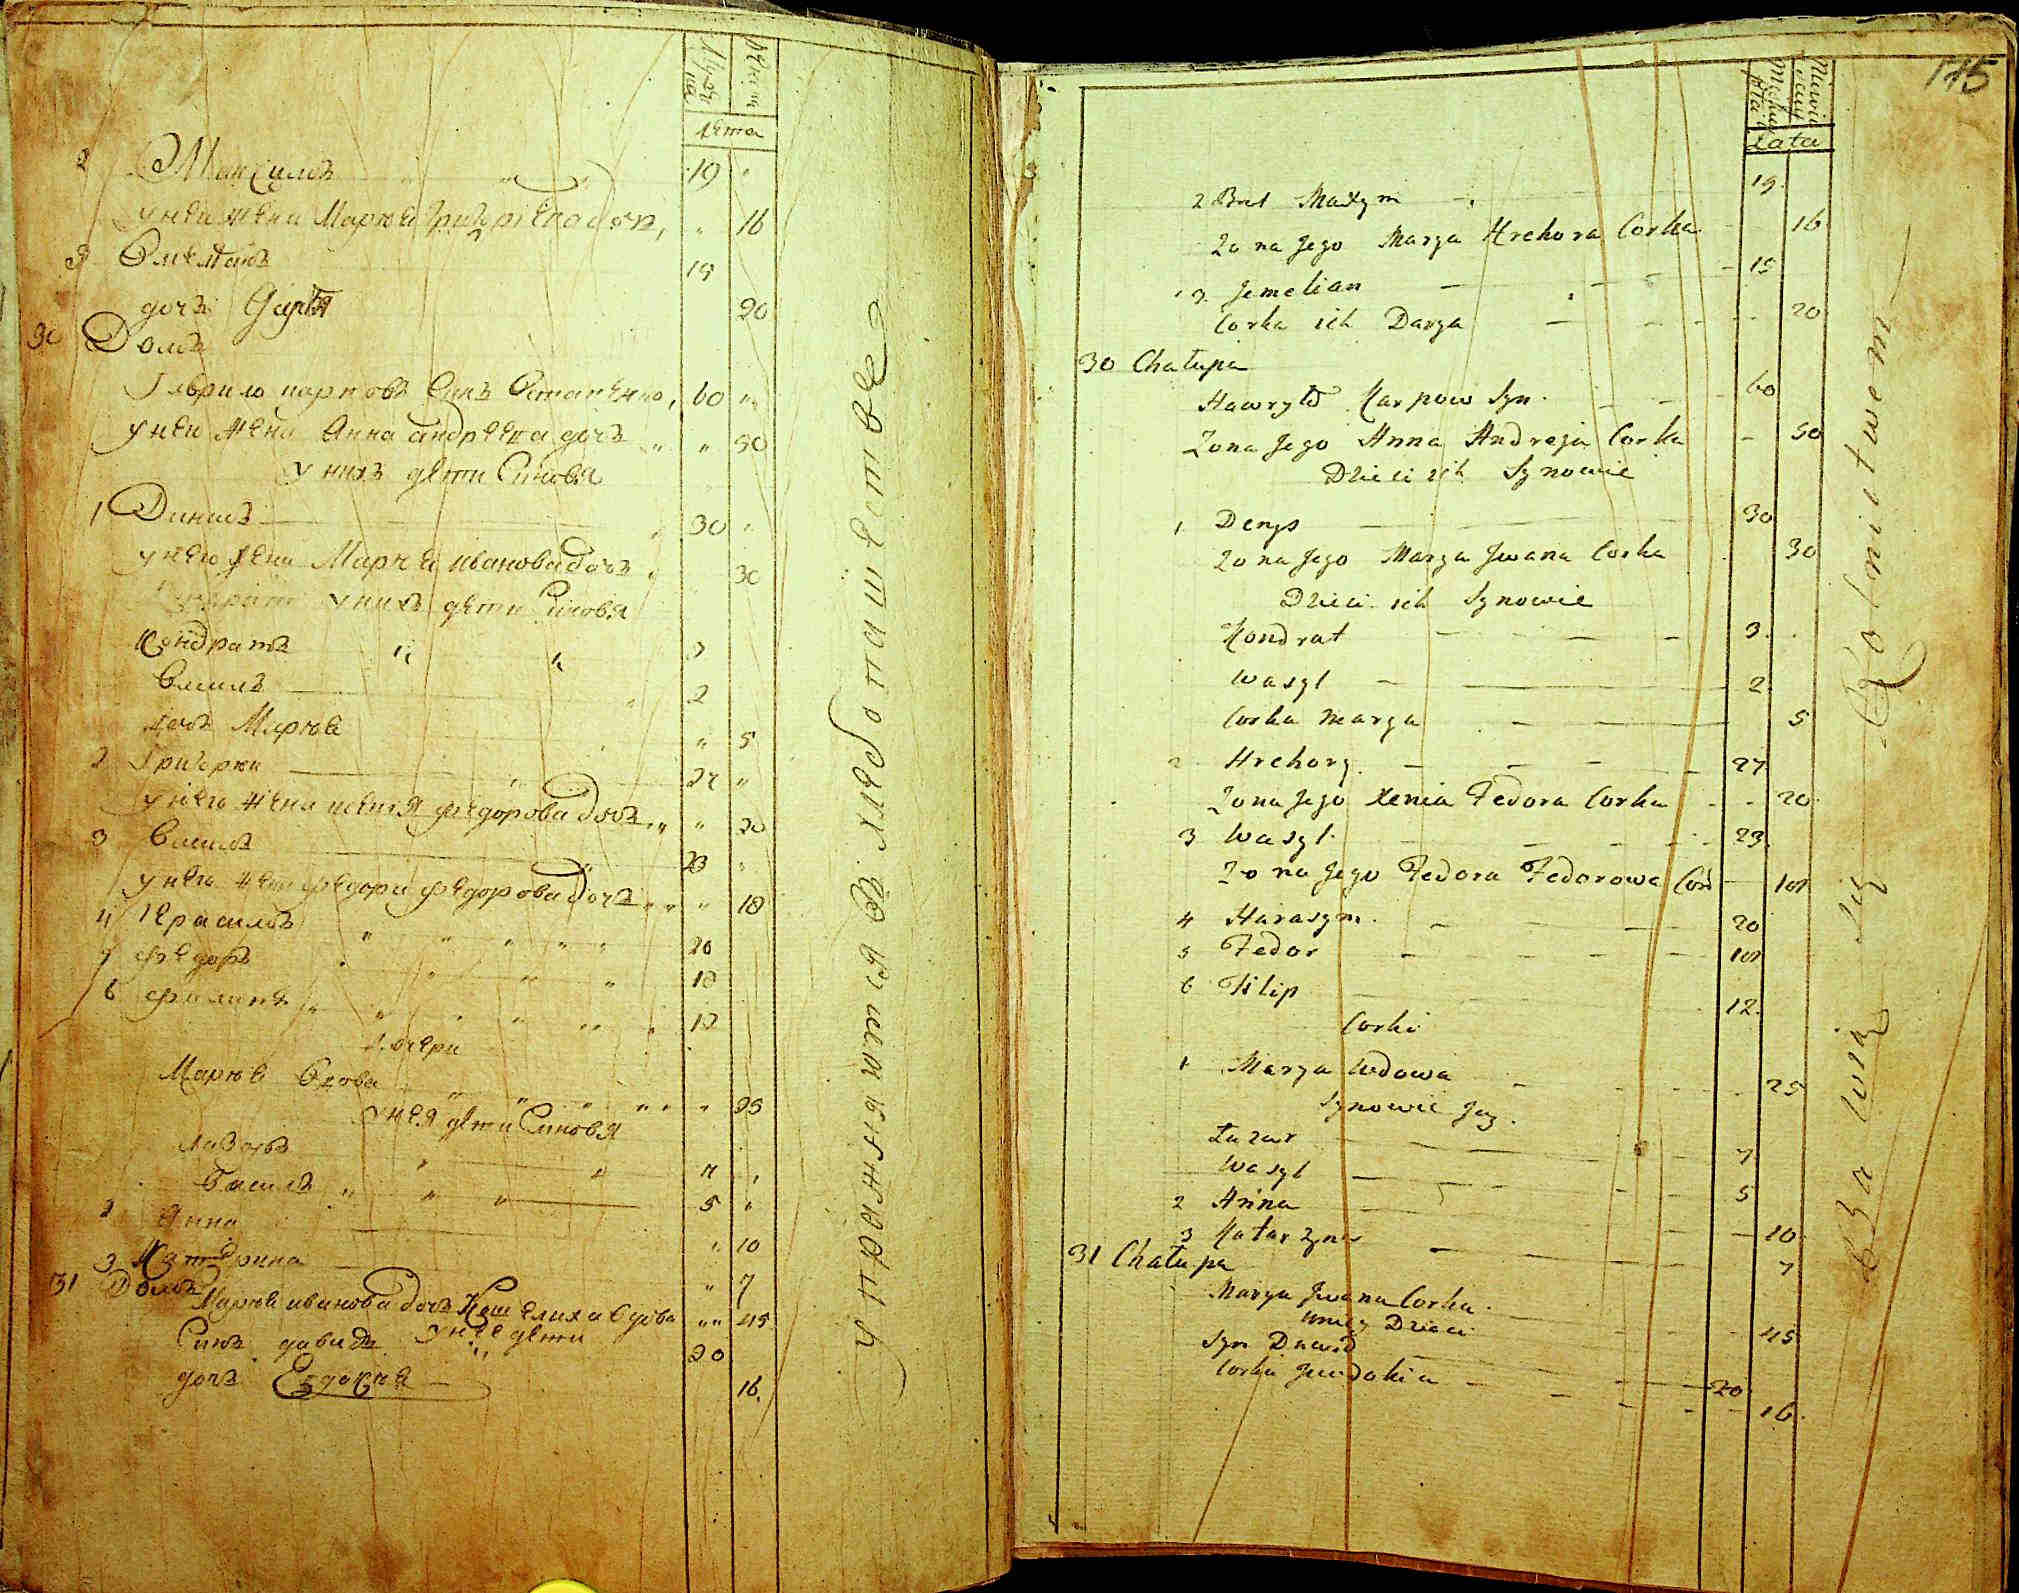 Лета
2 Максимъ 19
у него жена Марья 16
3 Омельянъ 15
дочь Дарья 20
30 Домъ
Гаврило карповъ Синъ 60
у него жена Анна андреева дочь 50
у нихъ дети Синовя
1 Денисъ 30
у него жена Марья иванова дочь 30
у нихъ дети Синовя
Кондратъ 3
Василь 2
дочь Марья 5
2 Григорий 27
у него жена ксения федорова дочь 20
3 Василь 23
у него жена федора федорова дочь 18
4 Герасимъ 20
5 федоръ 18
6 филипъ 12
дочери
Марья вдова 25
у нея дети Синовя
Лазарь 7
Василь 5
2 Анна 10
3 Катерина 7
31 Домъ
Марья иванова дочь вдова 45
у нее дети
Синъ давидъ 20
дочь Евдокия 16
упражняются В хлебопашестве
115
Lata
2 Brat Maxym 19
Zona Jego Marya Hrehora Corka 16
3 Jemelian 15
Corka ich Darya 20
30 Chałupa
Hawryło Karpow Syn 60
Zona Jego Anna Andreja Corka 50
Dzieci ich Synowie
1 Denys 30
Zona Jego Marya Jwana Corka 30
Dzieci ich Synowie
Kondrat 3
Wasyl 2
Corka Marya 5
2 Hrehory 27
Zona Jego Xenia Fedora Corka 20
3 Wasyl 23
Zona Jego Fedora Fedorowa Cor 18
4 Harasym 20
5 Fedor 18
6 Filip 12
Corki
1 Marya Wdowa 25
Synowie Jey
Łazar 7
Wasyl 5
2 Anna 10
3 Katarzyna 7
31 Chałupa
Marya Jwana Corka 45
Dzieci
Syn Dawid 20
Corka Jewdokia 16
Bawią się Rolnictwem